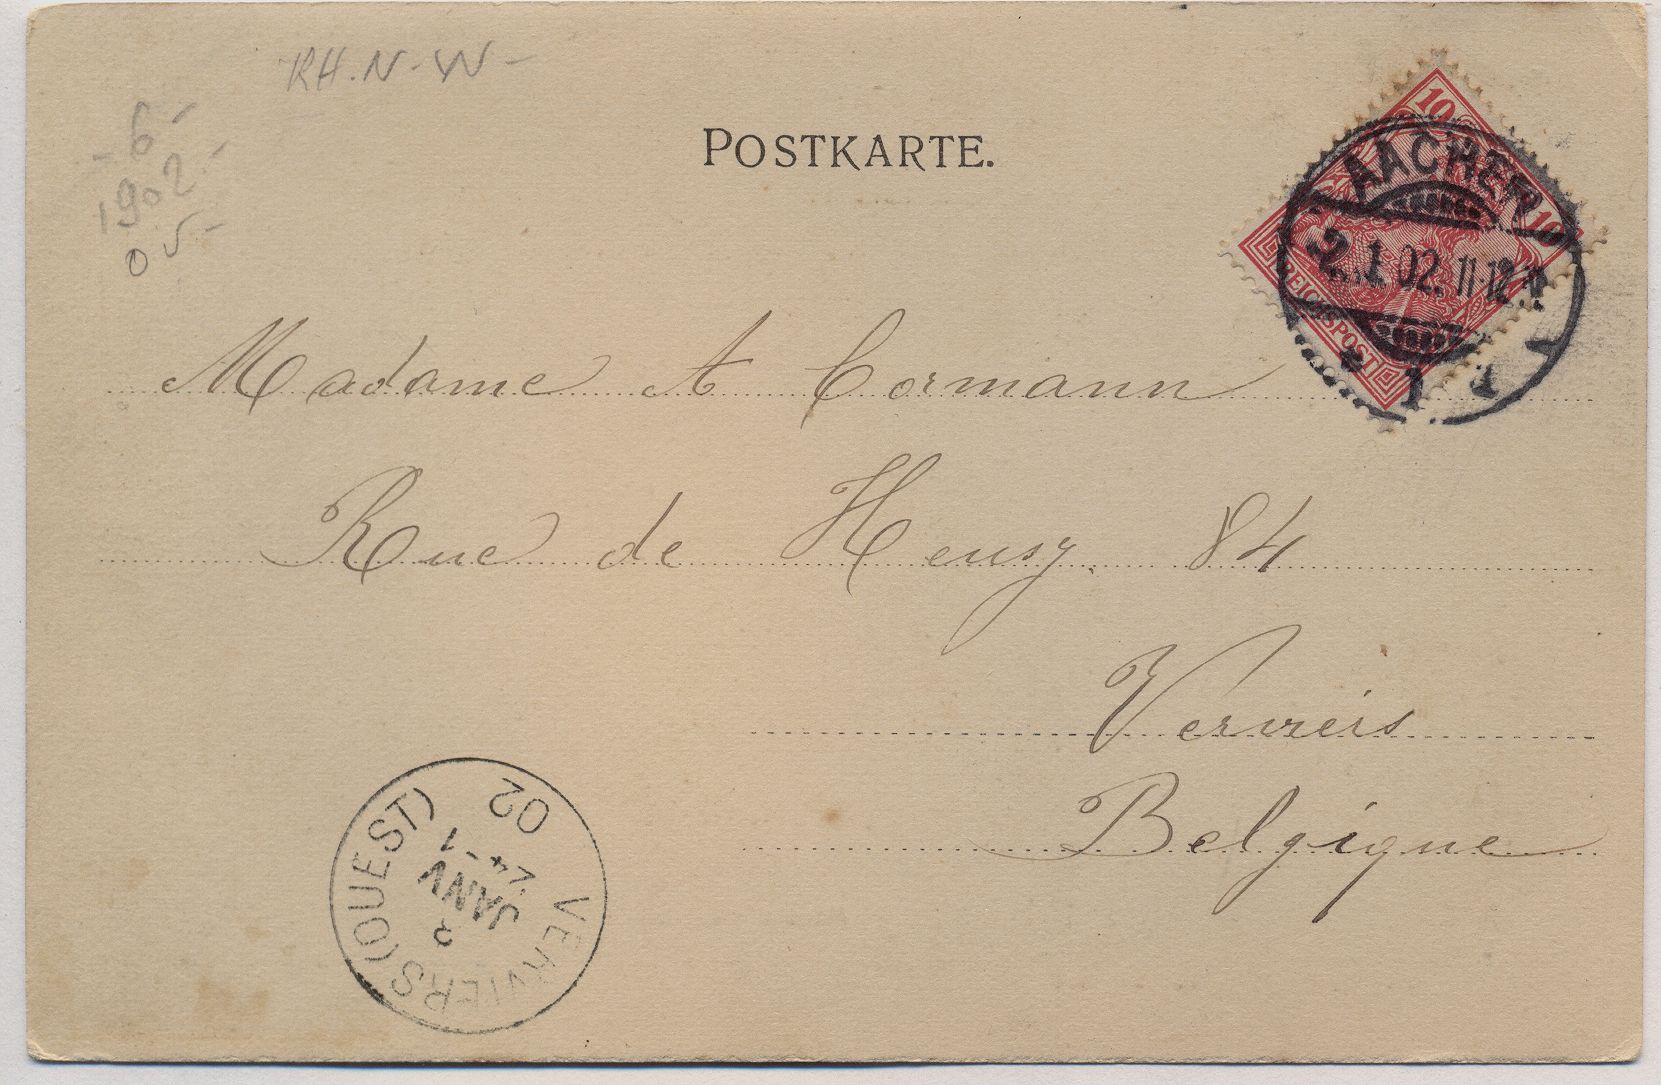 RH.N-W-
-6-
1902-
05-
POSTKARTE.
10 10
REICHSPOST
AACHEN
2.1.02. 11-12
1
Madame A Cormann
Rue de Heusy. 84
Verviers
Belgique
VERVIERS (OUEST)
2
JANV
1
02